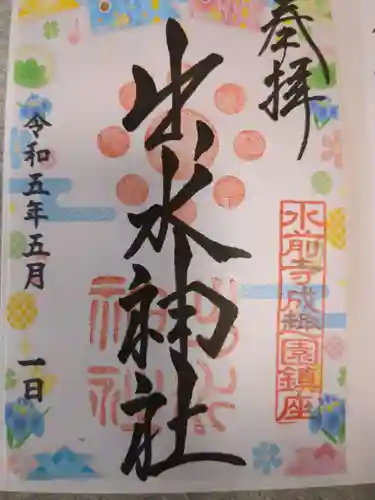 奉拝
水前寺成趣園鎮座
出水神社
出水神社
令和五年五月一日